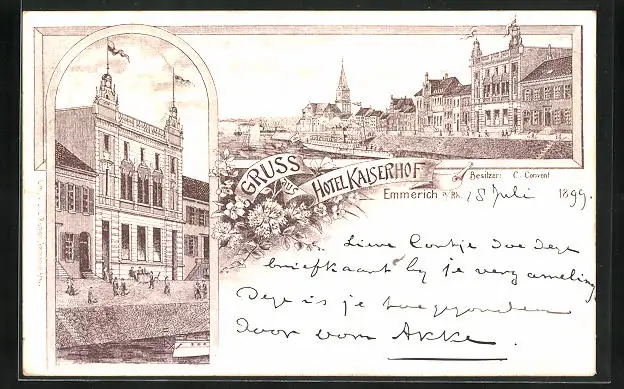 GRUSS aus HOTEL KAISERHOF
Besitzer: C. Convent
Emmerich a/Rh. 18 Juli 1899
Lieve Contje doe deze
briefkaart by je verzameling
Deze is je toegezonden
door oom Akke.